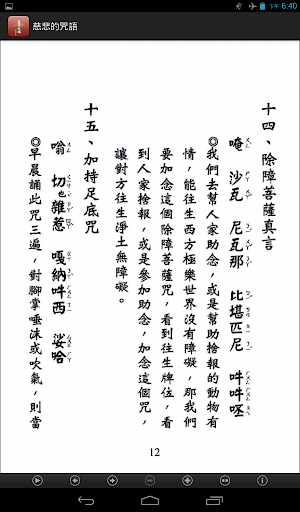 下午 6:40
慈悲的咒語
十四、除障菩薩真言
唵 沙瓦 尼瓦那 比堪匹尼 吽吽呸
◎我們去幫人家助念，或是幫助捨報的動物有
情，能往生西方極樂世界沒有障礙，那我們
要加念這個除障菩薩咒，看到往生牌位，看
到人家捨報，或是參加助念，加念這個咒，
讓對方往生淨土無障礙。
十五、加持足底咒
嗡 切也雜惹 嘎納吽西 娑哈
◎早晨誦此咒三遍，對腳掌唾沫或吹氣，則當
12